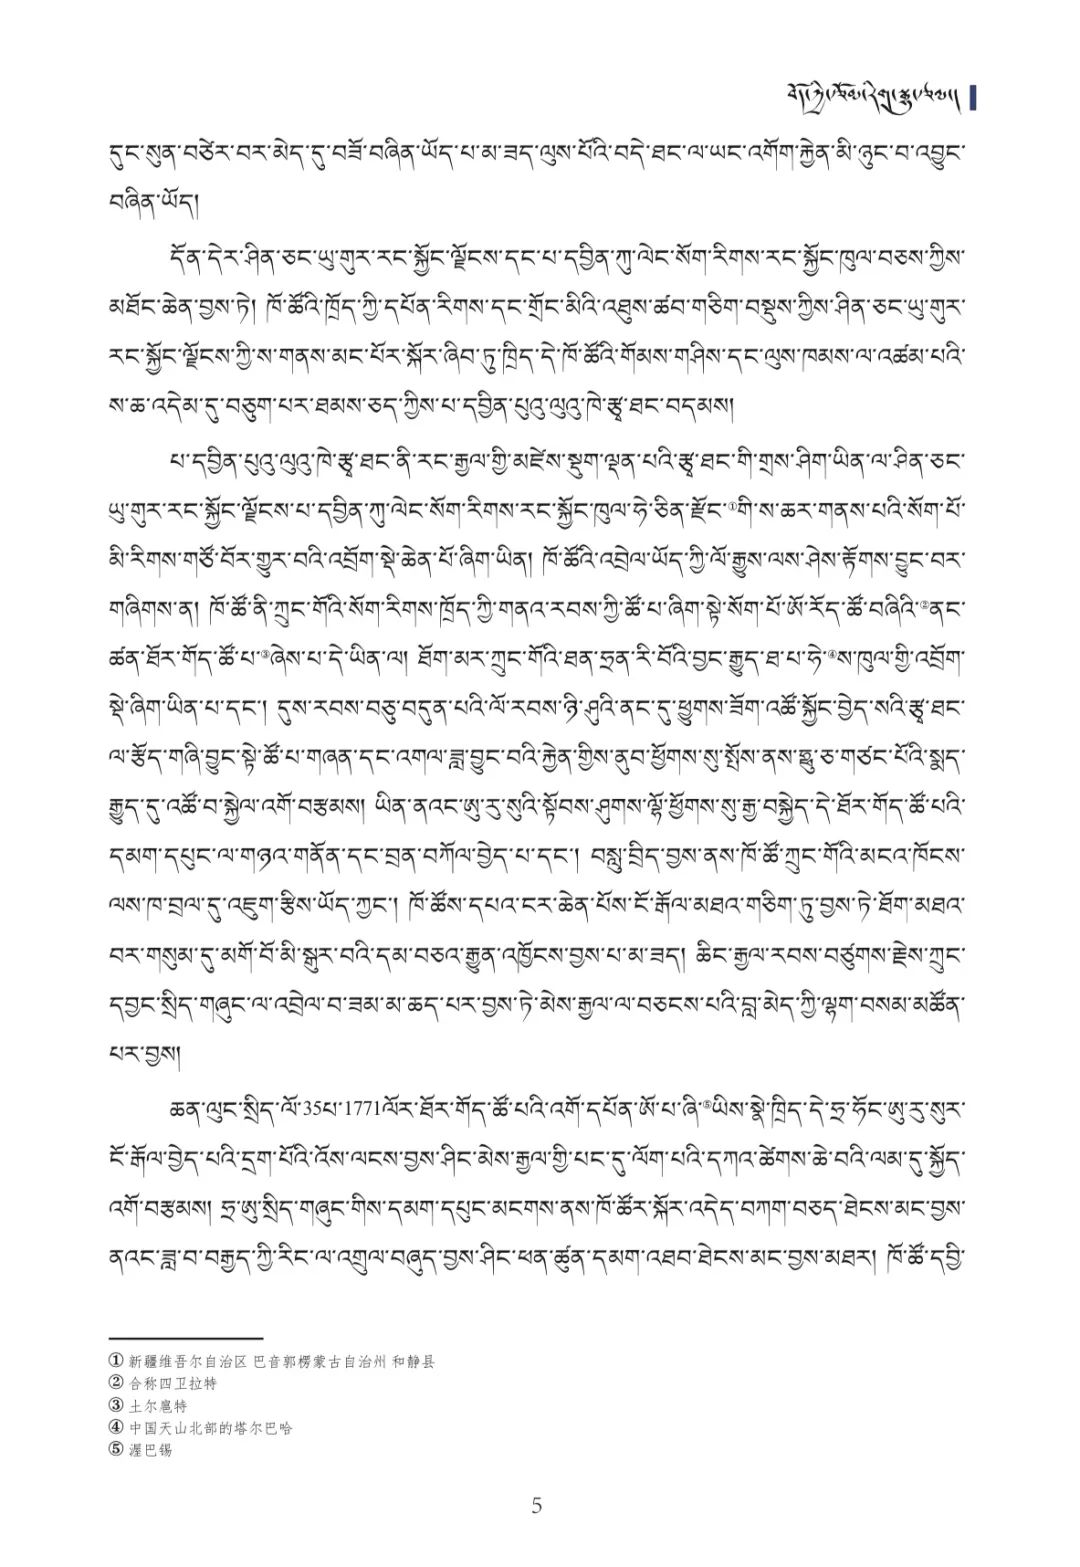 དུང་སུན་བཙེར་བར་མེད་དུ་བཟོ་བཞིན་ཡོད་པ་མ་ཟད་ལུས་པོའི་བདེ་ཐང་ལ་ཡང་འགོག་རྐྱེན་མི་ཉུང་བ་འབྱུང་
བཞིན་ཡོད།
དོན་དེར་ཤིན་ཅང་ཡུ་གུར་རང་སྐྱོང་ལྗོངས་དང་པ་དབྱིན་ཀུ་ལེང་སོག་རིགས་རང་སྐྱོང་ཁུལ་བཅས་ཀྱིས་
མཐོང་ཆེན་བྱས་ཏེ། ཁོ་ཚོའི་ཁྲོད་ཀྱི་དཔོན་རིགས་དང་གྲོང་མིའི་འཐུས་ཚབ་གཅིག་བསྡུས་ཀྱིས་ཤིན་ཅང་ཡུ་གུར་
རང་སྐྱོང་ལྗོངས་ཀྱི་ས་གནས་མང་པོར་སྐོར་ཞིབ་ཏུ་ཁྲིད་དེ་ཁོ་ཚོའི་གོམས་གཤིས་དང་ལུས་ཁམས་ལ་འཚམ་པའི་
ས་ཆ་འདེམ་དུ་བཅུག་པར་ཐམས་ཅད་ཀྱིས་པ་དབྱིན་པུའུ་ལུའུ་ཁེ་རྩྭ་ཐང་བདམས།
པ་དབྱིན་པུའུ་ལུའུ་ཁེ་རྩྭ་ཐང་ནི་རང་རྒྱལ་གྱི་མཛེས་སྡུག་ལྡན་པའི་རྩྭ་ཐང་གི་གྲས་ཤིག་ཡིན་ལ་ཤིན་ཅང་
ཡུ་གུར་རང་སྐྱོང་ལྗོངས་པ་དབྱིན་ཀུ་ལེང་སོག་རིགས་རང་སྐྱོང་ཁུལ་ཧེ་ཅིན་རྫོང་①གི་ས་ཆར་གནས་པའི་སོག་པོ་
མི་རིགས་གཙོ་བོར་གྱུར་བའི་འབྲོག་སྡེ་ཆེན་པོ་ཞིག་ཡིན། ཁོ་ཚོའི་འབྲེལ་ཡོད་ཀྱི་ལོ་རྒྱུས་ལས་ཤེས་རྟོགས་བྱུང་བར་
གཞིགས་ན། ཁོ་ཚོ་ནི་ཀྲུང་གོའི་སོག་རིགས་ཁྲོད་ཀྱི་གནའ་རབས་ཀྱི་ཚོ་པ་ཞིག་སྟེ་སོག་པོ་ཨོ་རོད་ཚོ་བཞིའི་②ནང་
ཚན་ཐོར་གོད་ཚོ་པ་③ཞེས་པ་དེ་ཡིན་ལ། ཐོག་མར་ཀྲུང་གོའི་ཐན་ཧྲན་རི་བོའི་བྱང་རྒྱུད་ཐ་པ་ཧེ་④ས་ཁུལ་གྱི་འབྲོག་
སྡེ་ཞིག་ཡིན་པ་དང་། དུས་རབས་བཅུ་བདུན་པའི་ལོ་རབས་ཉི་ཤུའི་ནང་དུ་ཕྱུགས་ཟོག་འཚོ་སྐྱོང་བྱེད་སའི་རྩྭ་ཐང་
ལ་རྩོད་གཞི་བྱུང་སྟེ་ཚོ་པ་གཞན་དང་འགལ་ཟླ་བྱུང་བའི་རྐྱེན་གྱིས་ནུབ་ཕྱོགས་སུ་སྤོས་ནས་ཧྥུ་ཅ་གཙང་པོའི་སྨད་
རྒྱུད་དུ་འཚོ་བ་སྐྱེལ་འགོ་བརྩམས། ཡིན་ནའང་ཨུ་རུ་སུའི་སྟོབས་ཤུགས་ལྷོ་ཕྱོགས་སུ་རྒྱ་བསྐྱེད་དེ་ཐོར་གོད་ཚོ་པའི་
དམག་དཔུང་ལ་གཉའ་གནོན་དང་བྲན་བཀོལ་བྱེད་པ་དང་། བསླུ་བྲིད་བྱས་ནས་ཁོ་ཚོ་ཀྲུང་གོའི་མངའ་ཁོངས་
ལས་ཁ་བྲལ་དུ་འཇུག་རྩིས་ཡོད་ཀྱང་། ཁོ་ཚོས་དཔའ་ངར་ཆེན་པོས་ངོ་རྒོལ་མཐའ་གཅིག་ཏུ་བྱས་ཏེ་ཐོག་མཐའ་
བར་གསུམ་དུ་མགོ་བོ་མི་སྒུར་བའི་དམ་བཅའ་རྒྱུན་འཁྱོངས་བྱས་པ་མ་ཟད། ཆིང་རྒྱལ་རབས་བཙུགས་རྗེས་ཀྲུང་
དབྱང་སྲིད་གཞུང་ལ་འབྲེལ་བ་ཟམ་མ་ཆད་པར་བྱས་ཏེ་མེས་རྒྱལ་ལ་བཅངས་པའི་བླ་མེད་ཀྱི་ལྷག་བསམ་མཚོན་
པར་བྱས།
ཆན་ལུང་སྲིད་ལོ་35པ་1771ལོར་ཐོར་གོད་ཚོ་པའི་འགོ་དཔོན་ཨོ་པ་ཞི་⑤ཡིས་སྣེ་ཁྲིད་དེ་ཧྲ་ཧོང་ཨུ་རུ་སུར་
ངོ་རྒོལ་བྱེད་པའི་དྲག་པོའི་འོས་ལངས་བྱས་ཤིང་མེས་རྒྱལ་གྱི་པང་དུ་ལོག་པའི་དཀའ་ཚེགས་ཆེ་བའི་ལམ་དུ་སྐྱོད་
འགོ་བརྩམས། ཧྲ་ཨུ་སྲིད་གཞུང་གིས་དམག་དཔུང་མངགས་ནས་ཁོ་ཚོར་སྐོར་འདེད་བཀག་བཅད་ཐེངས་མང་བྱས་
ནའང་ཟླ་བ་བརྒྱད་ཀྱི་རིང་ལ་འགྲུལ་བཞུད་བྱས་ཤིང་ཕན་ཚུན་དམག་འཐབ་ཐེངས་མང་བྱས་མཐར། ཁོ་ཚོ་དབྱི་
① 新疆维吾尔自治区 巴音郭楞蒙古自治州 和静县
② 合称四卫拉特
③ 土尔扈特
④ 中国天山北部的塔尔巴哈
⑤ 渥巴锡
5